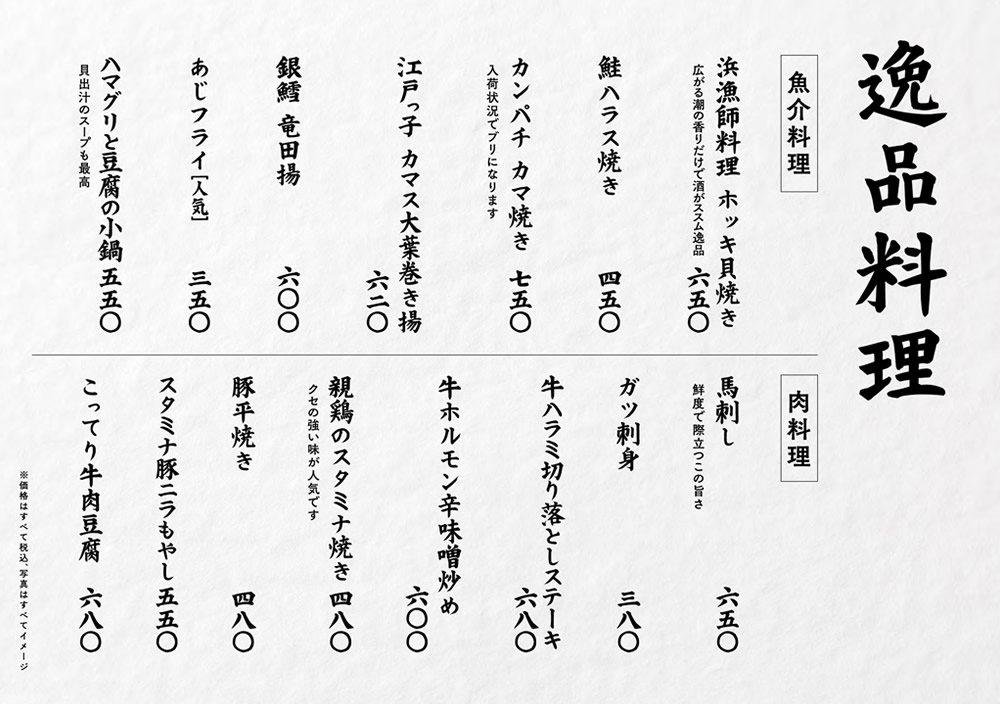 逸品料理
魚介料理
浜漁師料理 ホッキ貝焼き
広がる潮の香りだけで酒がススム逸品
六五〇
鮭 ハラス焼き
四五〇
カンパチ カマ焼き
入荷状況でブリになります
七五〇
江戸っ子 カマス大葉巻き揚
六二〇
銀鱈 竜田揚
六〇〇
あじフライ[人気]
三五〇
ハマグリと豆腐の小鍋
貝出汁のスープも最高
五五〇
肉料理
馬刺し
鮮度で際立つこの旨さ
六五〇
ガツ刺身
三八〇
牛ハラミ切り落としステーキ
六八〇
牛ホルモン辛味噌炒め
六〇〇
親鶏のスタミナ焼き
クセの強い味が人気です
四八〇
豚平焼き
四八〇
スタミナ豚ニラもやし
五五〇
こってり牛肉豆腐
六八〇
※価格はすべて税込、写真はすべてイメージ